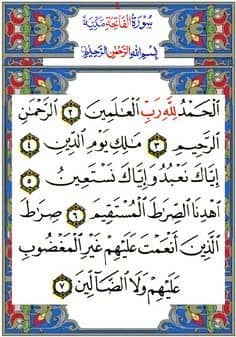 سُورَةُ الْفَاتِحَةِ مَكِّيَّة
بِسْمِ اللَّهِ الرَّحْمَٰنِ الرَّحِيمِ
الْحَمْدُ لِلَّهِ رَبِّ الْعَالَمِينَ ٢ الرَّحْمَٰنِ
الرَّحِيمِ ٣ مَالِكِ يَوْمِ الدِّينِ ٤
إِيَّاكَ نَعْبُدُ وَإِيَّاكَ نَسْتَعِينُ ٥
اهْدِنَا الصِّرَاطَ الْمُسْتَقِيمَ ٦ صِرَاطَ
الَّذِينَ أَنْعَمْتَ عَلَيْهِمْ غَيْرِ الْمَغْضُوبِ
عَلَيْهِمْ وَلَا الضَّالِّينَ ٧